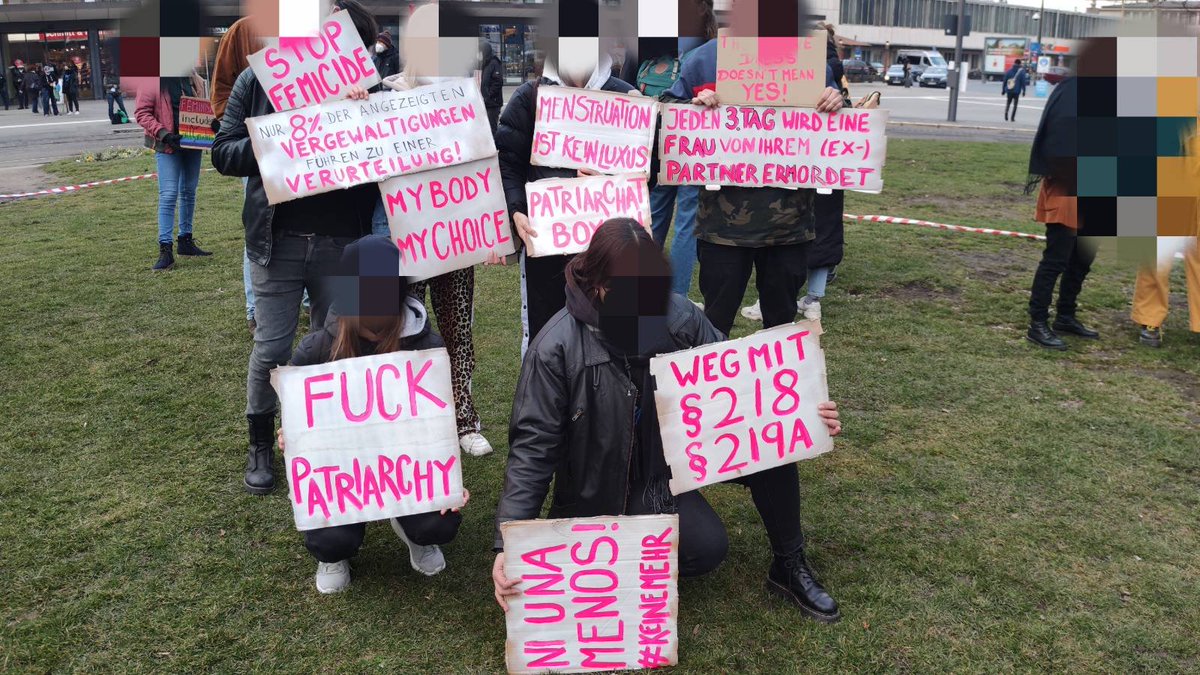 STOP
FEMICIDE
NUR 8% DER ANGEZEIGTEN
VERGEWALTIGUNGEN
FÜHREN ZU EINER
VERURTEILUNG!
MY BODY
MY CHOICE
MENSTRUATION
IST KEIN LUXUS
PATRIARCHAT
DOESN'T MEAN
YES!
JEDEN 3. TAG WIRD EINE
FRAU VON IHREM (EX-)
PARTNER ERMORDET
FUCK
PATRIARCHY
WEG MIT
§218
§219A
NI UNA
MENOS!
#KEINEMEHR